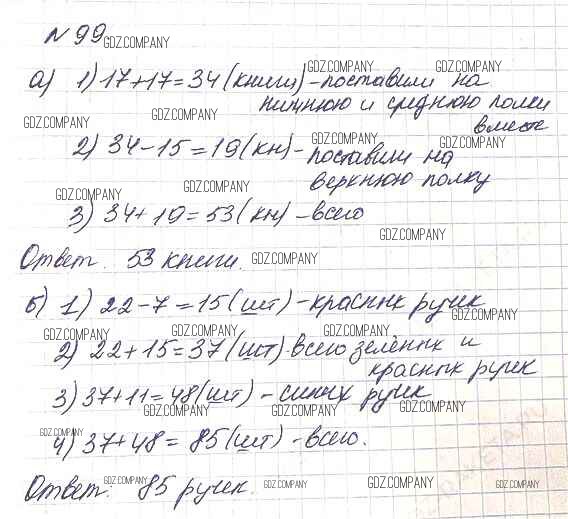 N 99
GDZ.COMPANY
GDZ.COMPANY GDZ.COMPANY
а) 1) 17+17=34 (книги)-поставили на
нижнюю и среднюю полки
GDZ.COMPANY GDZ.COMPANY
вместе
2) 34-15=19 (кн)-
GDZ.COMPANY GDZ.COMPANY
поставили на
верхнюю полку
GDZ.COMPANY GDZ.COMPANY
3) 34+19=53 (кн) -всего
GDZ.COMPANY
Ответ. 53 книги. GDZ.COMPANY
б) 1) 22-7=15 (шт)-красных ручек
GDZ.COMPANY
GDZ.COMPANY GDZ.COMPANY GDZ.COMPANY
2) 22+15=37 (шт)-всего зелёных и
красных ручек
3) 37+11=48 (шт) - синих ручек
GDZ.COMPANY GDZ.COMPANY GDZ.COMPANY
GDZ.COMPANY
4) 37+48=85 (шт) -всего.
Ответ: 85 ручек.
GDZ.COMPANY GDZ.COMPANY GDZ.COMPANY GDZ.COMPANY